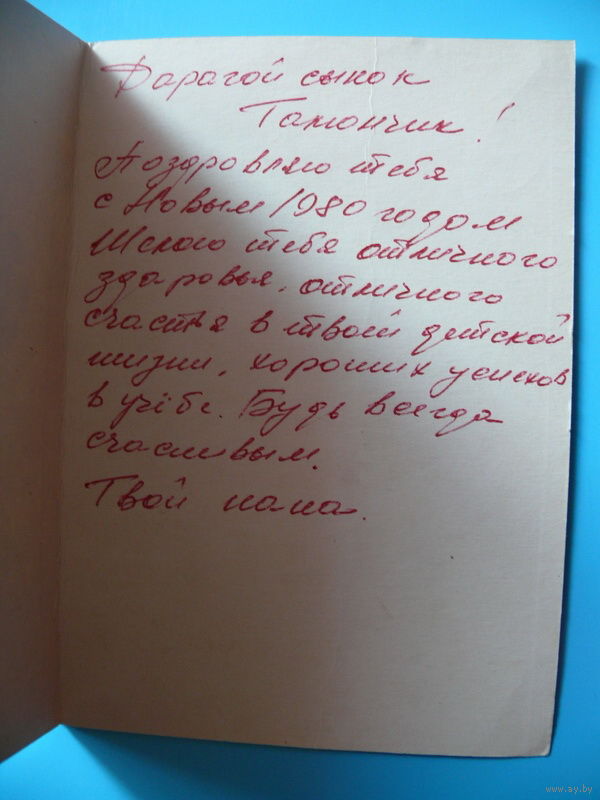 Дарагой сынок
Тамончик!
Поздровляю тебя
с Новым 1980 годом
Желаю тебя отличного
здаровья, отличного
счастья в твоей детской
жизни, хороших успехов
в учёбе. Будь всегда
счасливым.
Твой папа.
www.ay.by